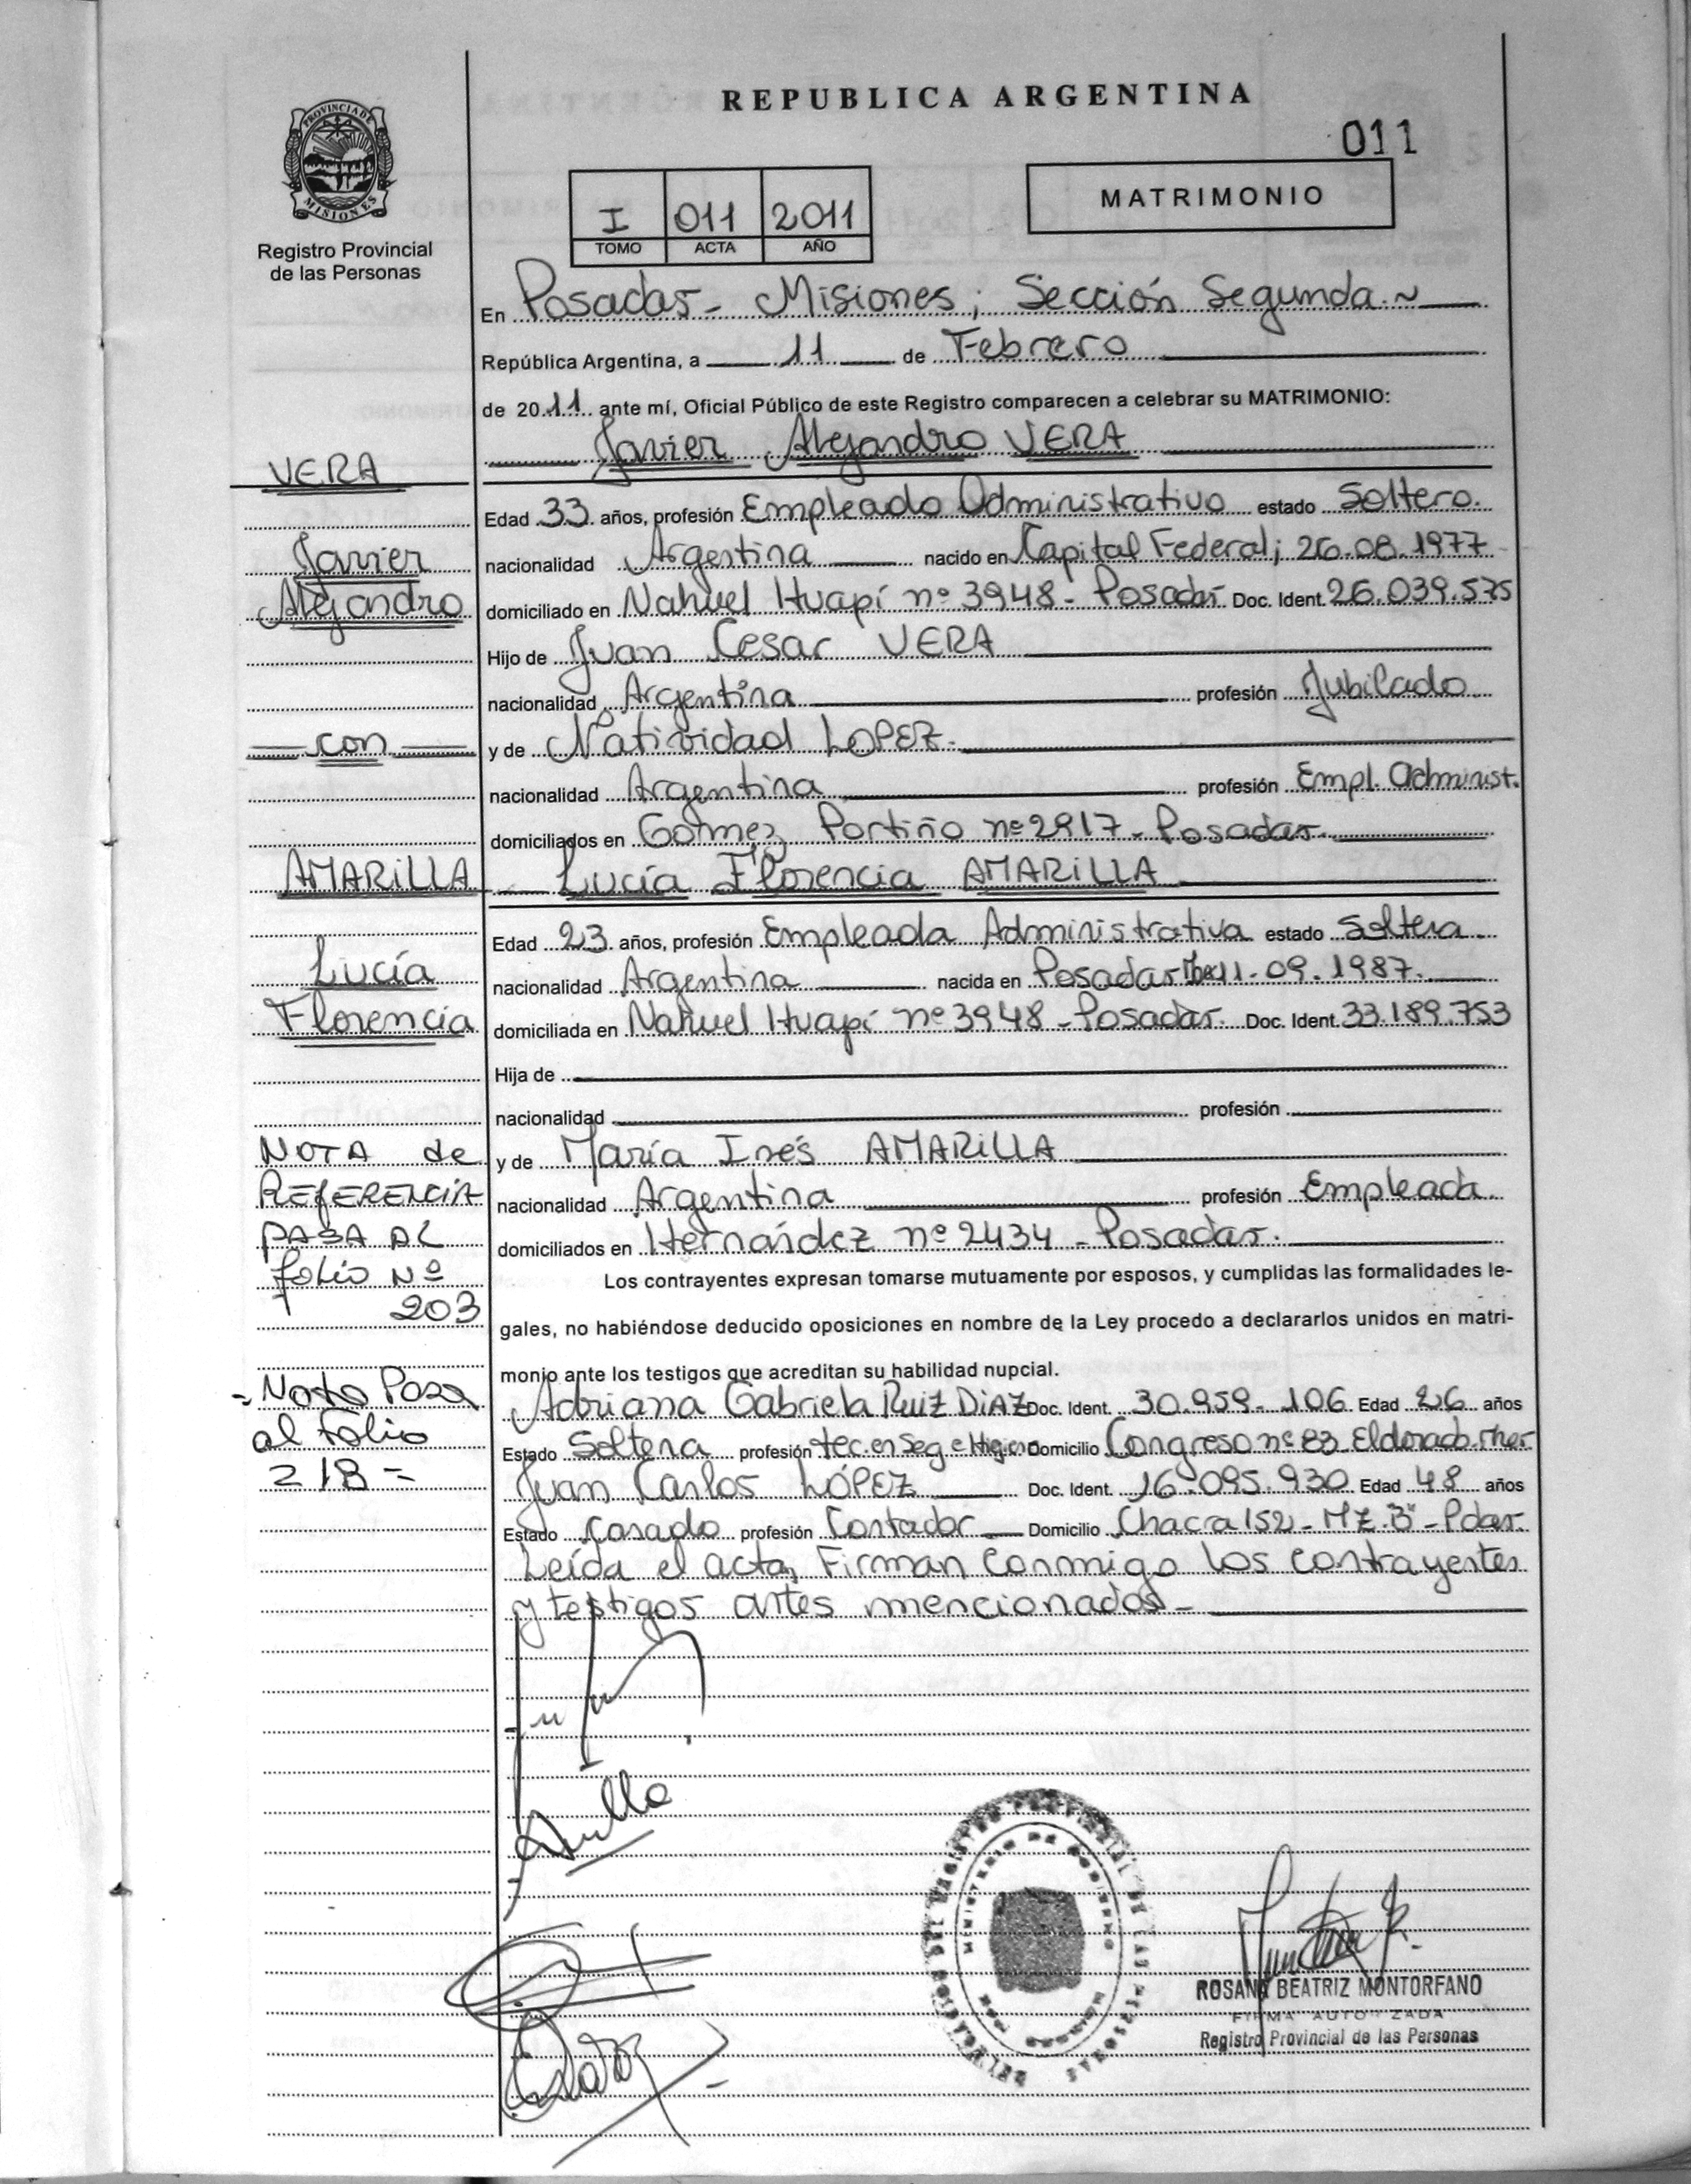 REPUBLICA ARGENTINA
011
PROVINCIA DE MISIONES
Registro Provincial
de las Personas
I 011 2011
TOMO ACTA AÑO
MATRIMONIO
En Posadas - Misiones; Sección Segunda.~
República Argentina, a 11 de Febrero
de 2011 ante mí, Oficial Público de este Registro comparecen a celebrar su MATRIMONIO:
Javier Alejandro VERA
VERA
Edad 33 años, profesión Empleado Administrativo estado Soltero.
Javier
nacionalidad Argentina nacido en Capital Federal; 26.08.1977
Alejandro
domiciliado en Nahuel Huapí nº 3948 - Posadas Doc. Ident. 26.039.575
Hijo de Juan Cesar VERA
nacionalidad Argentina profesión Jubilado
con
y de Natividad LOPEZ.
nacionalidad Argentina profesión Empl. Administ.
domiciliados en Gómez Portiño nº 2917 - Posadas.
AMARILLA
Lucía Florencia AMARILLA
Edad 23 años, profesión Empleada Administrativa estado Soltera
Lucía
nacionalidad Argentina nacida en Posadas 11.09.1987.
Florencia
domiciliada en Nahuel Huapí nº 3948 - Posadas. Doc. Ident. 33.189.753
Hija de
nacionalidad profesión
NOTA de
y de María Inés AMARILLA
REfERENCIA
nacionalidad Argentina profesión Empleada.
PASA AL
domiciliados en Hernández nº 2434 - Posadas.
folio Nº
203
Los contrayentes expresan tomarse mutuamente por esposos, y cumplidas las formalidades le-
gales, no habiéndose deducido oposiciones en nombre de la Ley procedo a declararlos unidos en matri-
monio ante los testigos que acreditan su habilidad nupcial.
- Nota Pasa
al Folio
218 =
Adriana Gabriela RUIZ DIAZ Doc. Ident. 30.959.106 Edad 26 años
Estado Soltera profesión tec. en Seg. e Higiene Domicilio Congreso nº 83 Eldorado
Juan Carlos LÓPEZ Doc. Ident. 16.095.930 Edad 48 años
Estado Casado profesión Contador Domicilio Chacra 152 - MZ. "B" - Pdas.
Leída el acta, Firman conmigo los contrayentes
y testigos antes mencionados -
ROSANA BEATRIZ MONTORFANO
FIRMA AUTORIZADA
Registro Provincial de las Personas